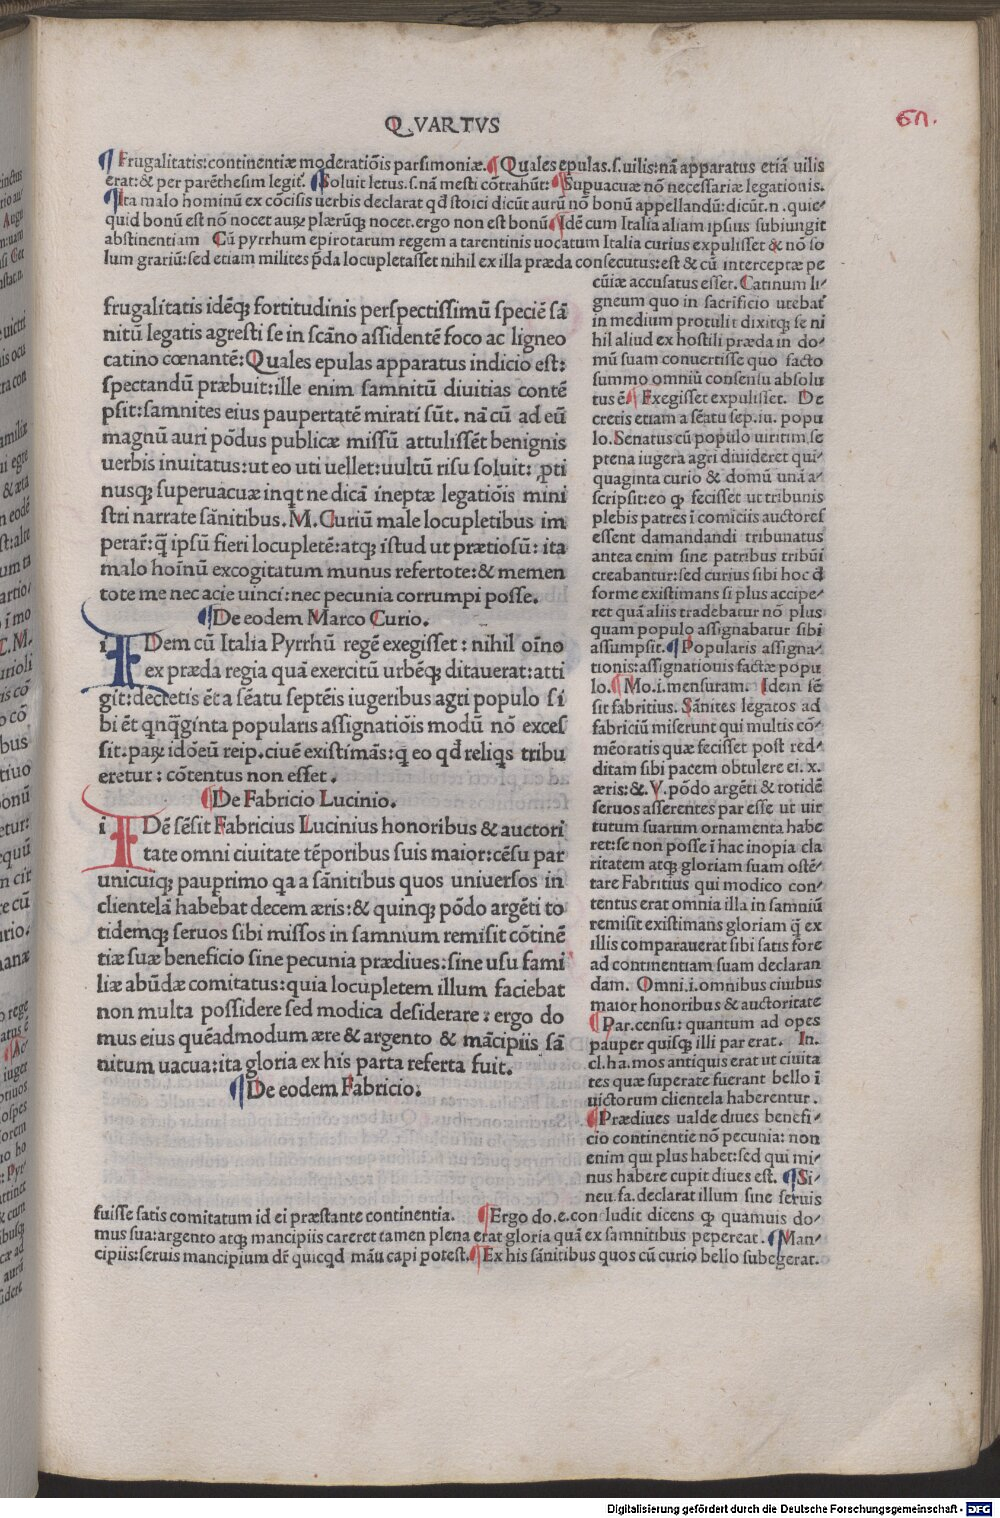 QVARTVS
¶ Frugalitatis:continentiæ moderatiōis parsimoniæ.¶ Quales epulas.s.uilis:nā apparatus etiā uilis
erat:& per parēthesim legit̃. ¶ Soluit letus.s.nā mesti cōtrahūt: ¶ Supuacuæ nō necessariæ legationis.
¶ Ita malo hominū ex cōcisis uerbis declarat qđ stoici dicūt aurū nō bonū appellandū:dicūt.n.quic⸗
quid bonū est nō nocet auꝝ plærūqꝫ nocet.ergo non est bonū ¶ Idē cum Italia aliam ipsius subiungit
abstinentiam Cū pyrrhum epirotarum regem a tarentinis uocatum Italia curius expulisset & nō so
lum grariū:sed etiam milites p̄da locupletasset nihil ex illa præda consecutus:est & cū interceptæ pe
cūiæ accusatus esset. Catinum li⸗
gneum quo in sacrificio utebat̃
in medium protulit dixitqꝫ se ni
hil aliud ex hostili præda in do⸗
mū suam conuertisse quo facto
summo omniū consensu absolu
tus ē¶ Exegisset expulisset. De
cretis etiam a sēatu sep.iu. popu
lo. Senatus cū populo uiritim se
ptena iugera agri diuideret qui⸗
quaginta curio & domū unā a⸗
scripsit:eo qꝫ fecisset ut tribunis
plebis patres ī comiciis auctores
essent damandandi tribunatus
antea enim sine patribus tribūi
creabantur:sed curius sibi hoc đ
forme existimans si plus accipe⸗
ret quā aliis tradebatur nō plus
quam populo assignabatur sibi
assumpsit.¶ Popularis assigna⸗
tionis:assignationis factæ popu
lo.¶ Mo.i.mensuram. Idem sē
sit fabritius. Sānites legatos ad
fabriciū miserunt qui multis cō⸗
mēoratis quæ fecisset post red⸗
ditam sibi pacem obtulere ei. x.
æris:&.V.pōdo argēti & totidē
seruos asserentes par esse ut uir
tutum suarum ornamenta habe
ret:se non posse ī hac inopia cla
ritatem atqꝫ gloriam suam ostē⸗
tare Fabritius qui modico con⸗
tentus erat omnia illa in samniū
remisit existimans gloriam q̄ ex
illis comparauerat sibi satis fore
ad continentiam suam declaran
dam. Omni.i.omnibus ciuibus
maior honoribus & auctoritate
¶ Par.censu: quantum ad opes
pauper quisqꝫ illi par erat. In.
cl.ha.mos antiquis erat ut ciuita
tes quæ superate fuerant bello ī
uictorum clientela haberentur.
¶ Prædiues ualde diues benefi⸗
cio continentie nō pecunia: non
enim qui plus habet:sed qui mi⸗
nus habere cupit diues est. ¶ Si⸗
neu.fa.declarat illum sine seruis
fuisse satis comitatum id ei præstante continentia. ¶ Ergo do.e.con ludit dicens qꝫ quamuis do⸗
mus sua:argento atqꝫ mancipiis careret tamen plena erat gloria quā ex samnitibus pepereat.¶ Man⸗
cipiis:seruis mancipium dr̄ quicqđ māu capi potest.¶ Ex his sānitibus quos cū curio bello subegerat.
frugalitatis idēqꝫ fortitudinis perspectissimū speciē sā
nitū legatis agresti se in scāno assidentē foco ac ligneo
catino cœnantē: Quales epulas apparatus indicio est:
spectandū præbuit:ille enim samnitū diuitias contē
psit:samnites eius paupertatē mirati sūt. nā cū ad eū
magnū auri pōdus publicæ missū attulissēt benignis
uerbis inuitatus:ut eo uti uellet:uultū risu soluit: ꝓti
nusqꝫ superuacuæ inq̇t ne dicā ineptæ legatiōis mini
stri narrate sānitibus. M. Curiū male locupletibus im
perar̄:q̄ ipsū fieri locupletē:atqꝫ istud ut prætiosū: ita
malo hoīnū excogitatum munus refertote:& memen
tote me nec acie uinci: nec pecunia corrumpi posse.
¶ De eodem Marco Curio.
I Dem cū Italia Pyrrhū regē exegisset: nihil oīno
ex præda regia quā exercitū urbēqꝫ ditauerat:atti
git:decretis ēt a sēatu septēis iugeribus agri populo si
bi ēt q̇nq̄ginta popularis assignatiōis modū nō exces
sit:paꝝ idōeū reip.ciuē existimās:q̄ eo qđ reliq̇s tribu
eretur: cōtentus non esset.
¶ De Fabricio Lucinio.
I Dē sēsit Fabricius Lucinius honoribus & auctori
tate omni ciuitate tēporibus suis maior:cēsu par
unicuiqꝫ pauprimo qa a sānitibus quos uniuersos in
clientelā habebat decem æris:& quinqꝫ pōdo argēti to
tidemqꝫ seruos sibi missos in samnium remisit cōtinē
tiæ suæ beneficio sine pecunia prædiues:sine usu fami
liæ abūdæ comitatus:quia locupletem illum faciebat
non multa possidere sed modica desiderare: ergo do
mus eius quēadmodum ære & argento & mācipiis sā
nitum uacua:ita gloria ex his parta referta fuit.
¶ De eodem Fabricio.
Digitalisierung gefördert durch die Deutsche Forschungsgemeinschaft - DFG